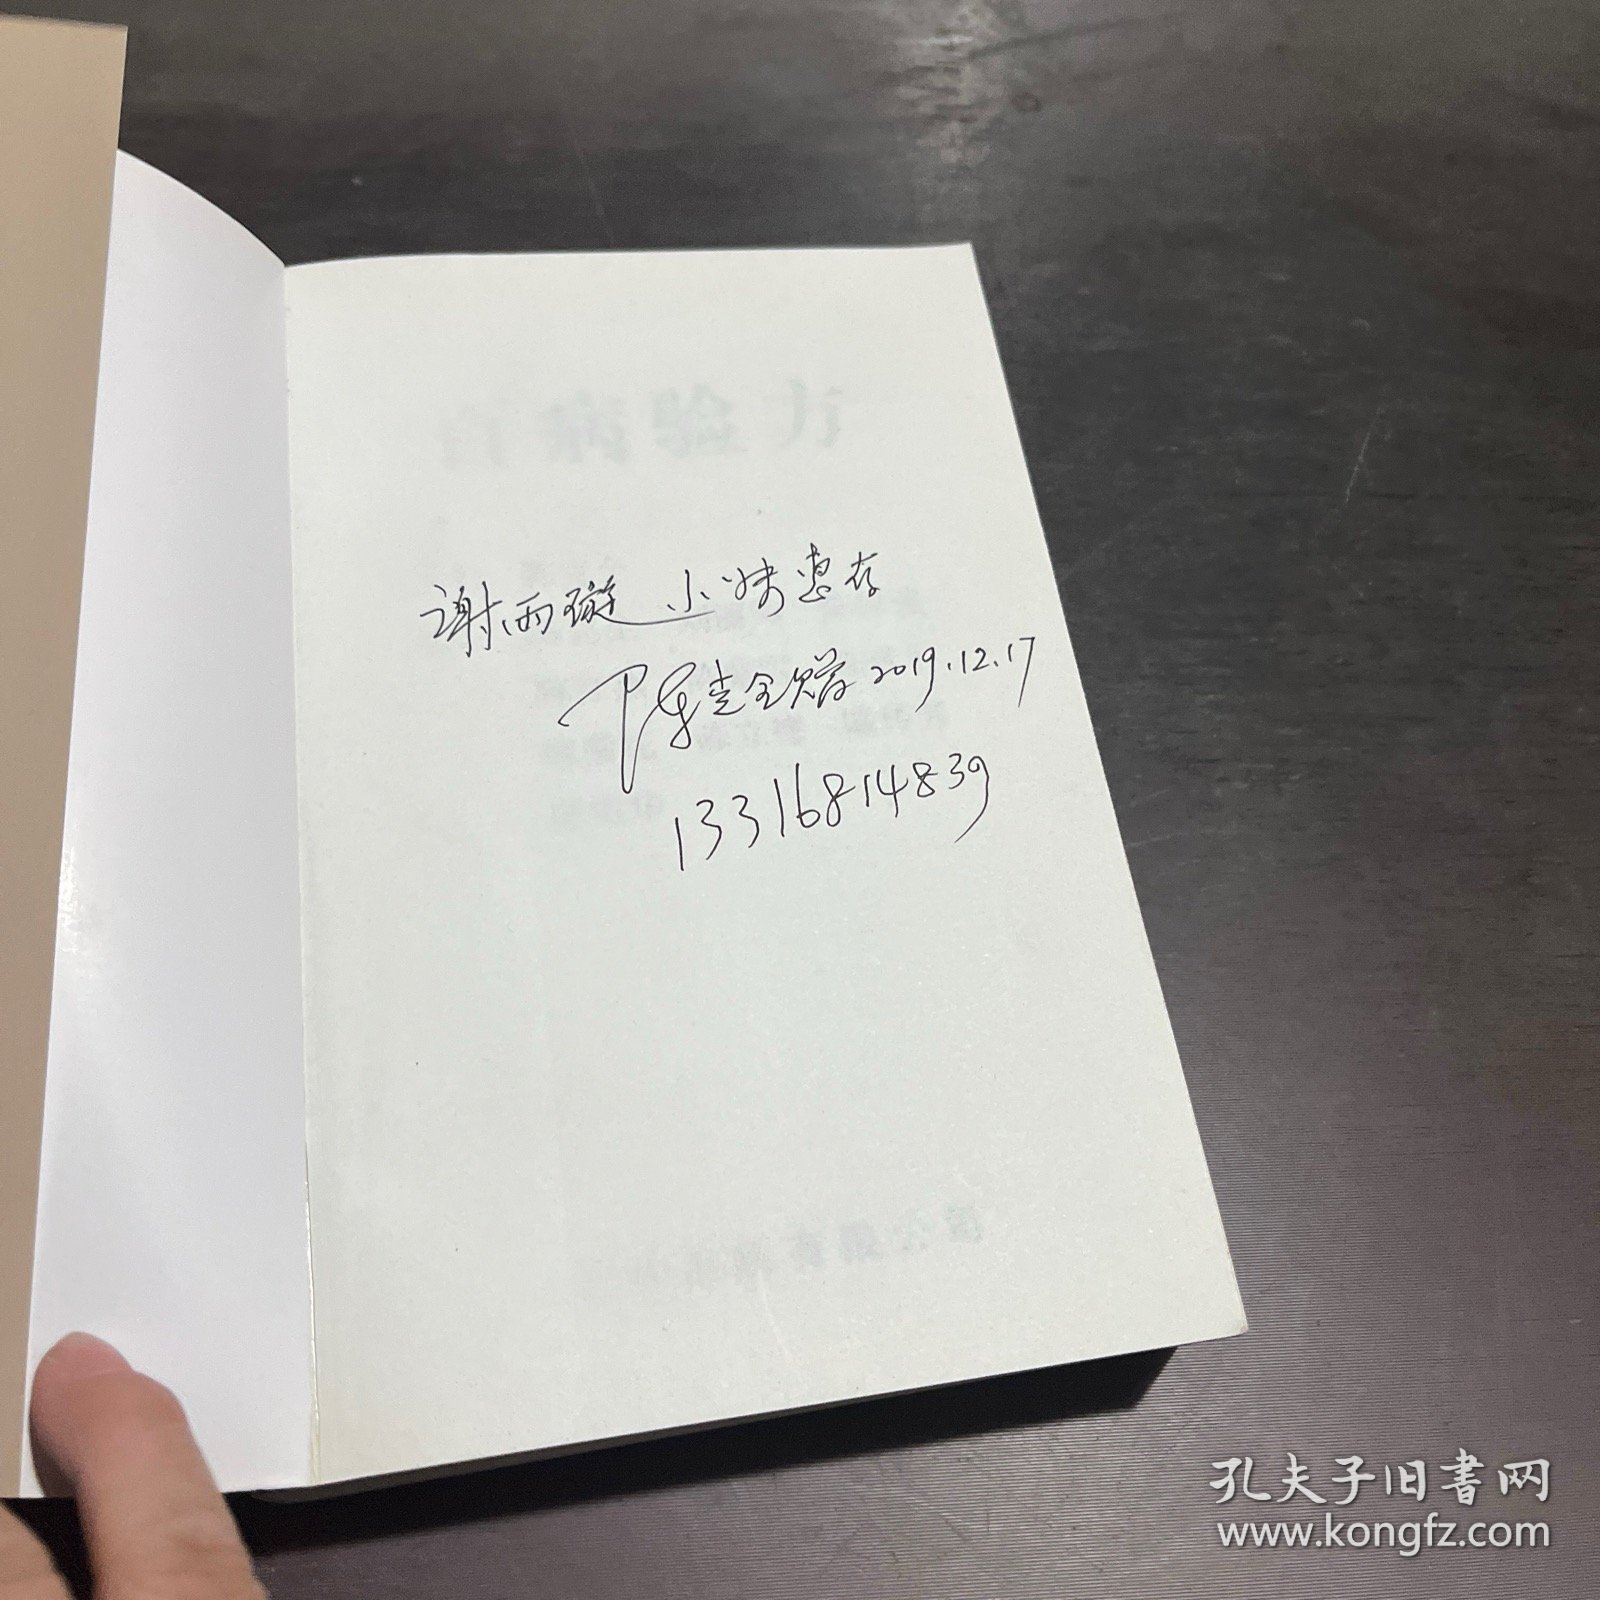 谢雨璇小妹惠存
陈壹全赠 2019.12.17
13316814839
孔夫子旧书网
www.kongfz.com